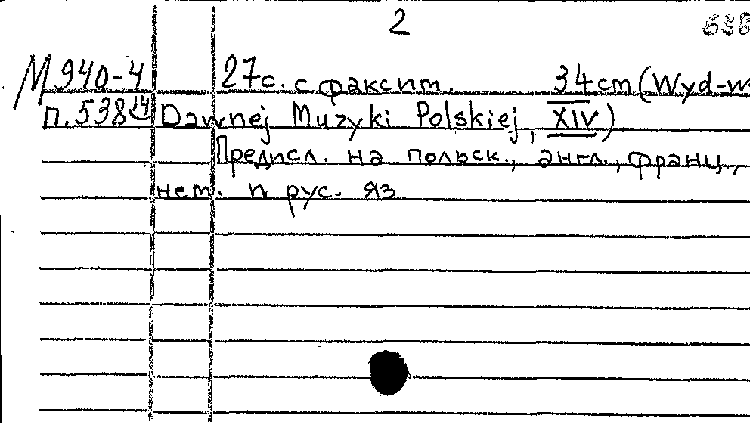 2
М 940-4 27с. с факсим. 34cm (Wyd-w
п. 538 14 Dawnej Muzyki Polskiej, XIV)
Предисл. на польск., англ., франц.,
нем. и рус. яз